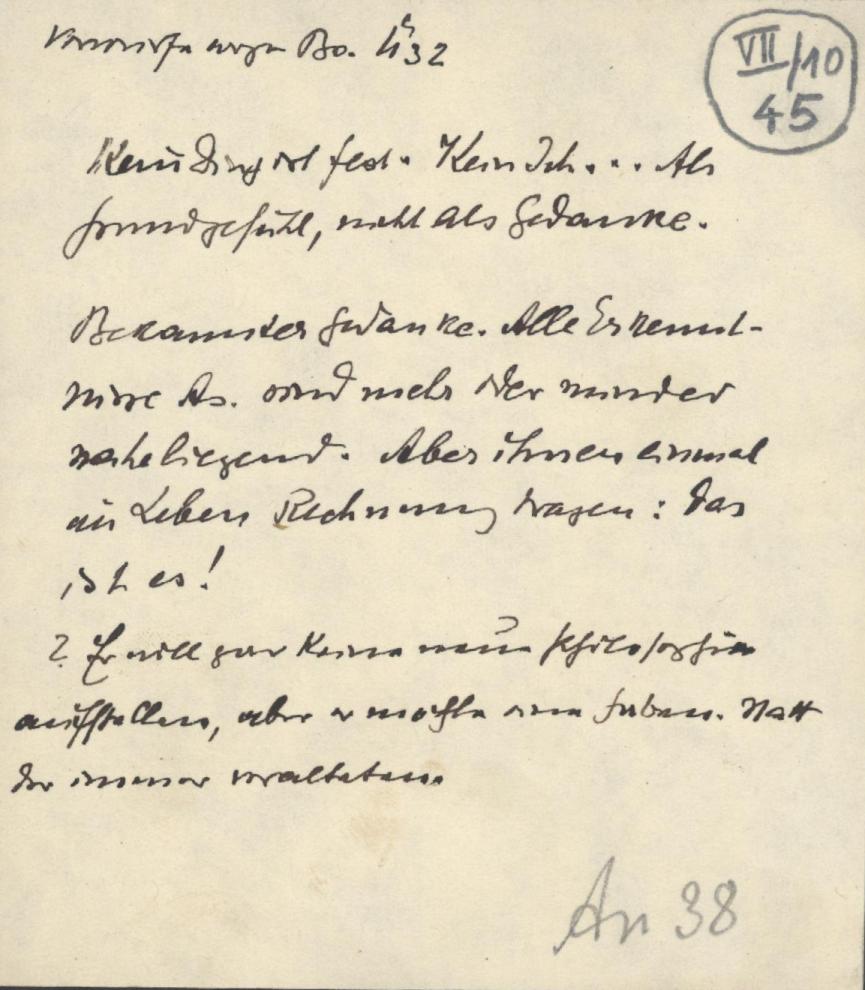 Vorwürfe wegen Bo. 32
VII/10
45
Kein Ding ist fest. Kein Ich... Als
Grundgefühl, nicht als Gedanke.
Bekannter Gedanke. Alle Erkennt-
nisse As. sind mehr oder minder
naheliegend. Aber ihnen einmal
im Leben Rechnung tragen: das
ist es!
? Er will gar keine neue Philosophie
aufstellen, aber er möchte eine haben. statt
der immer veralteten.
An 38